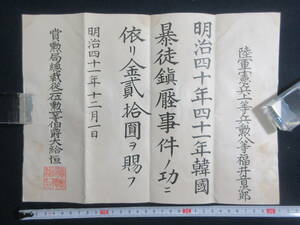 陸軍憲兵上等兵勲八等福井育郎
明治四十年四十一年韓國
暴徒鎮壓事件ノ功ニ
依リ金貳拾圓ヲ賜フ
明治四十一年十二月一日
賞勲局總裁從二位勲一等伯爵大給恒